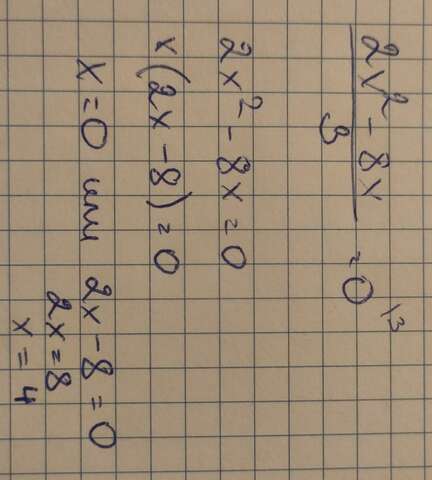 2x² - 8x
3
= 0 | · 3
2x² - 8x = 0
x(2x - 8) = 0
x = 0 или 2x - 8 = 0
2x = 8
x = 4